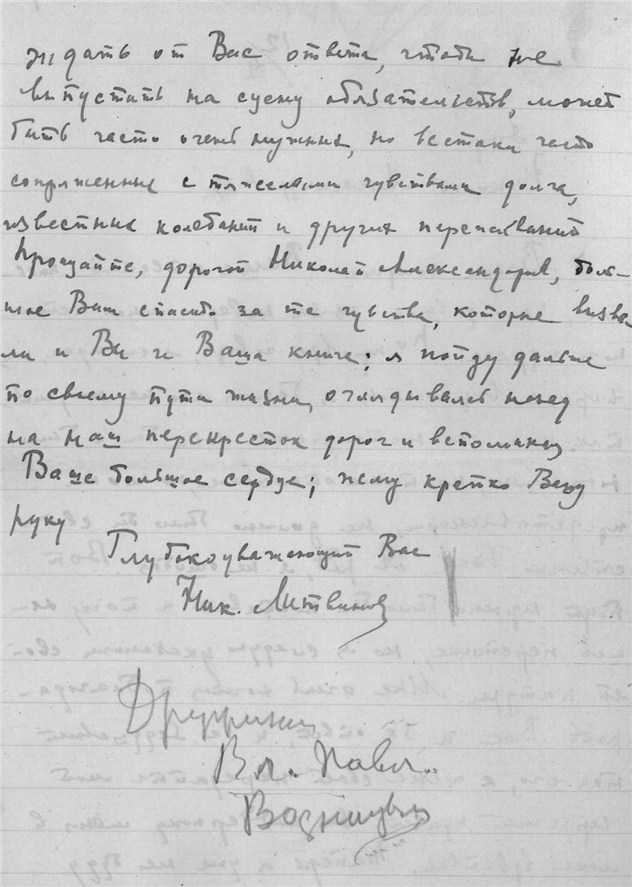 ждать от Вас ответа, чтобы не
выпустить на сцену обязательств, может
быть часто очень нужных, но всетаки часто
сопряженных с тяжелыми чувствами долга,
известных колебаний и других переживаний
Прощайте, дорогой Николай Александров., боль-
шое Вам спасибо за те чувства, которые вызва-
ли и Вы и Ваша книга; я пойду дальше
по своему пути жизни, оглядываясь назад
на наш перекресток дорог и вспоминая
Ваше большое сердце; жму крепко Вашу
руку
Глубокоуважающий Вас
Ник. Литвинов
Вл. Павл.